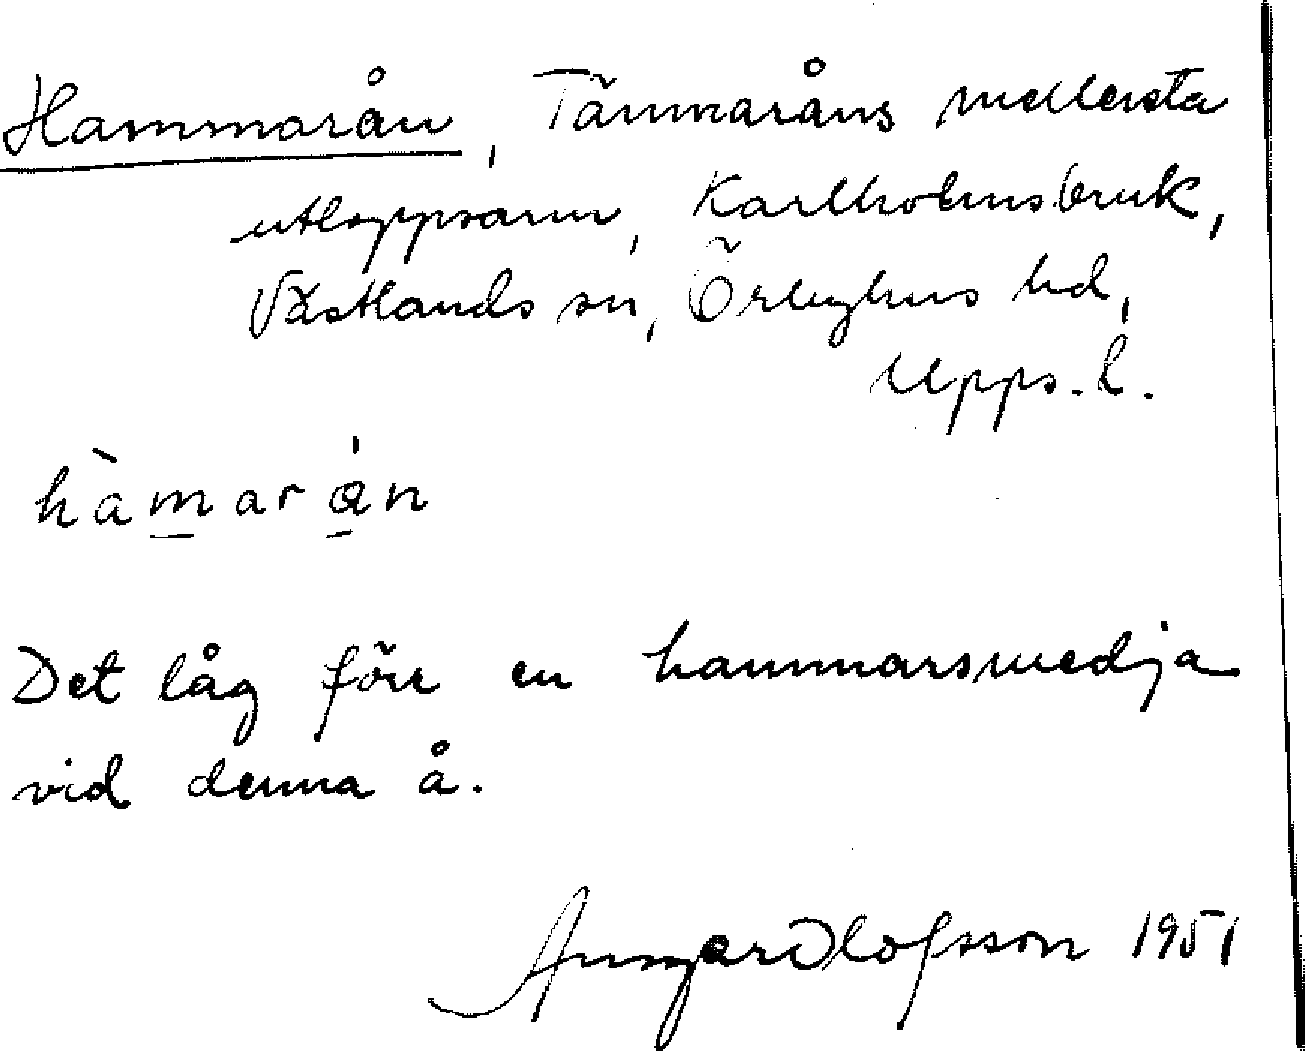 Hammarån, Tämnaråns mellersta
utloppsarm, Karlholmsbruk,
Västlands sn, Örbyhus hd,
Upps. l.
hàmarán
Det låg förr en hammarsmedja
vid denna å.
Ansgar Olofsson 1951